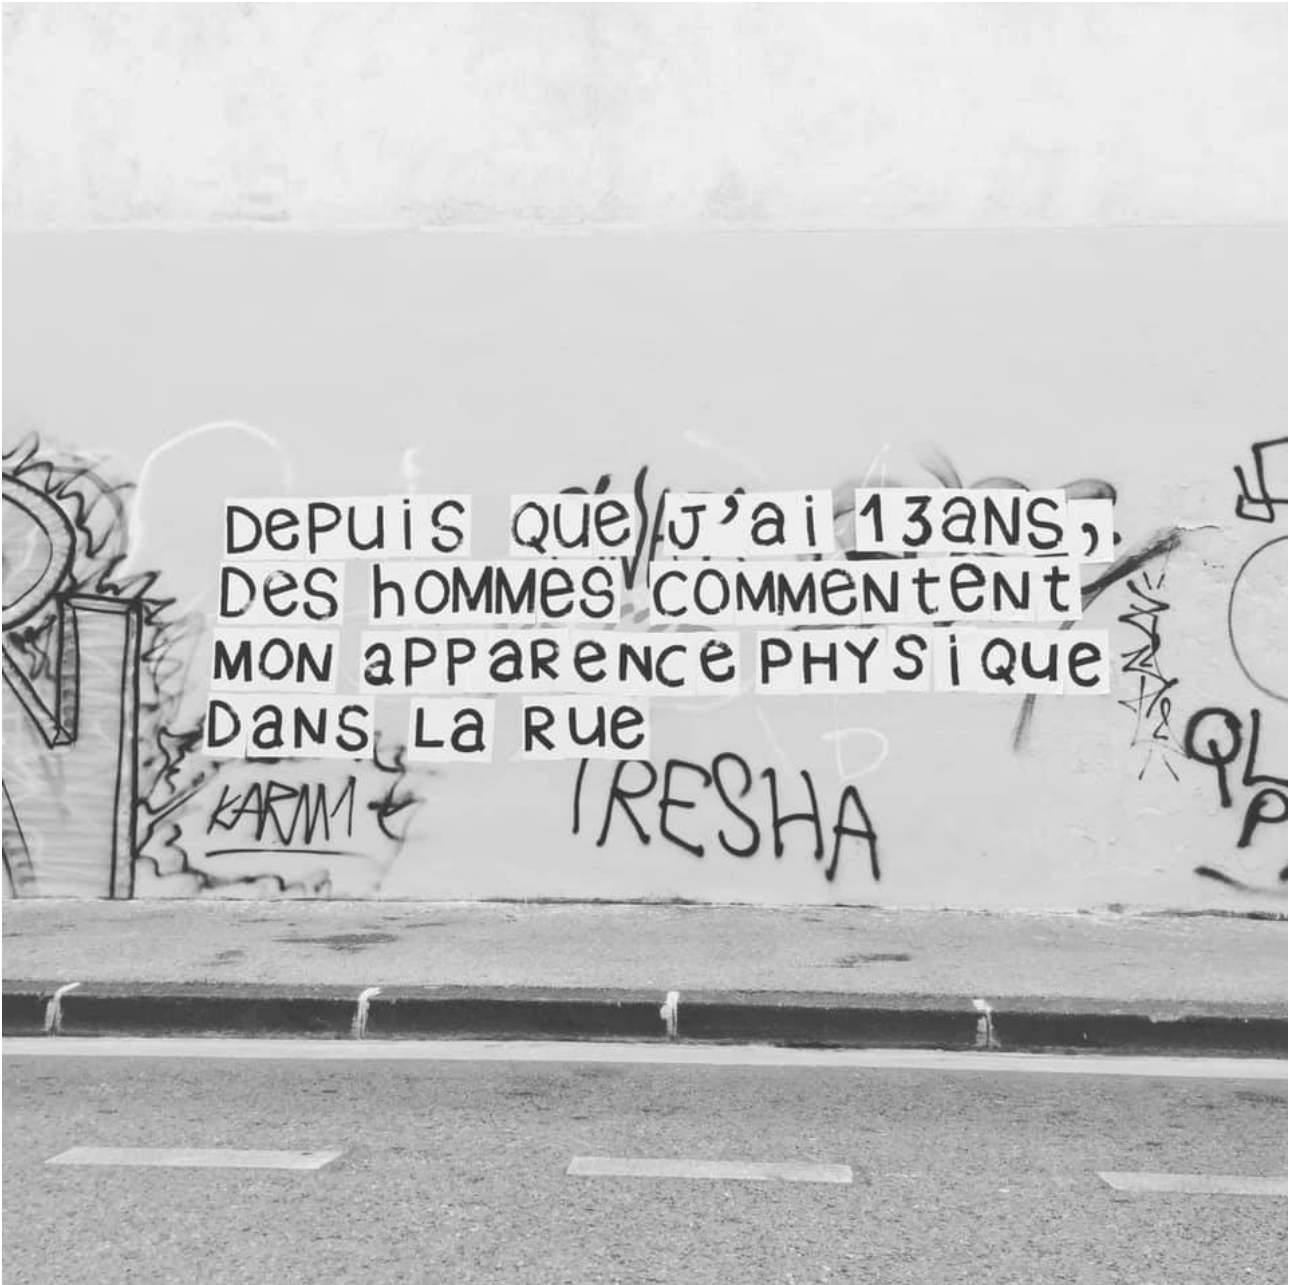 DePuis Que J'ai 13aNS,
Des hOMMes COMMeNteNt
MON aPPaReNce PHYSiQue
DaNS La Rue
KARM1
TRESHA
QL
P